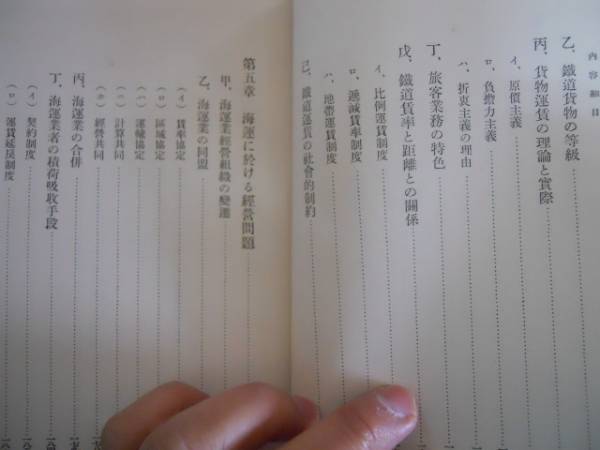 內容細目
乙、鐵道貨物の等級
丙、貨物運賃の理論と實際
イ、原價主義
ロ、負擔力主義
ハ、折衷主義の理由
丁、旅客業務の特色
戊、鐵道賃率と距離との關係
イ、比例運賃制度
ロ、遞減賃率制度
ハ、地帶運賃制度
己、鐵道運賃の社會的制約
第五章 海運に於ける經營問題
甲、海運業經營組織の變遷
乙、海運業の同盟
(イ) 賃率協定
(ロ) 區域協定
(ハ) 運輸協定
(ニ) 計算共同
(ホ) 經營共同
丙、海運業の合併
丁、海運業者の積荷吸收手段
(イ) 契約制度
(ロ) 運賃延戾制度